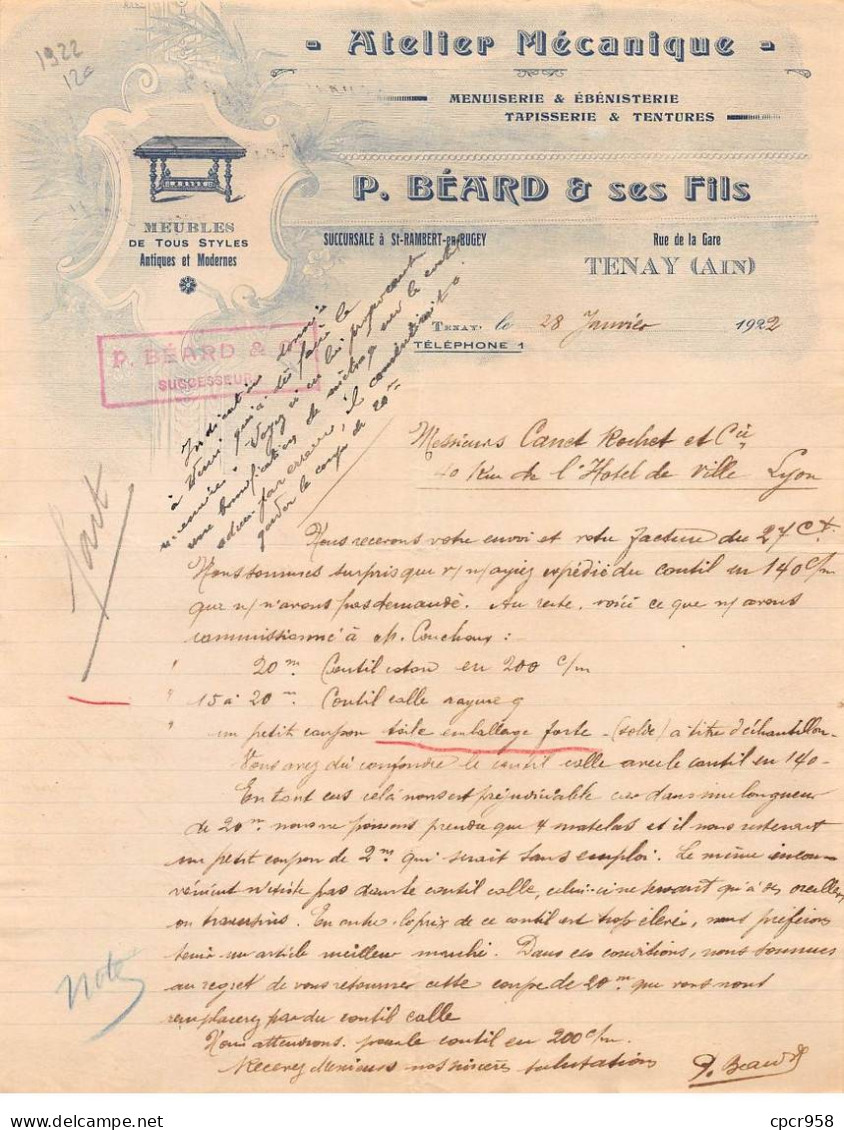 1922
12c
- Atelier Mécanique -
MENUISERIE & ÉBÉNISTERIE
TAPISSERIE & TENTURES
P. BÉARD & ses Fils
MEUBLES
DE TOUS STYLES
Antiques et Modernes
SUCCURSALE à St-RAMBERT-en-BUGEY
Rue de la Gare
TENAY (AIN)
TENAY, le 28 Janvier 1922
TÉLÉPHONE 1
P. BÉARD & 
SUCCESSEUR
Indication donnée
à qui a dû faire le
Voyez si en lui proposant
une bonification de sur le coutil
par erreur, il consentirait à
garder la coupe de 20m
Messieurs Canet Rochet et Cie
40 Rue de l'Hotel de Ville Lyon
fart
Nous recevons votre envoi et votre facture du 27 Ct.
Nous sommes surpris que v/ n/ ayiez expédié du coutil en 140 c/m
que n/ n'avons pas demandé. Au reste, voici ce que n/ avons
commissionné à M. Couchoux :
" 20 m. Coutil coton en 200 c/m
" 15 à 20 m. Coutil calle rayure g
" un petit coupon toile emballage forte (solde) à titre d'échantillon
Vous avez dû confondre le coutil calle avec le coutil en 140-
En tout cas celà nous est préjudiciable car dans une longueur
de 20 m. nous ne pouvons prendre que 4 matelas et il nous resterait
un petit coupon de 2 m. qui serait sans emploi. Le même incon-
vénient n'existe pas dans le coutil calle, celui-ci ne servant qu'à des oreillers
ou traversins. En outre le prix de ce coutil est trop élevé, nous préférions
tenir un article meilleur marché. Dans ces conditions, nous sommes
au regret de vous retourner cette coupe de 20 m. que vous nous
remplacerez par du coutil calle
Nous attendrons pour le coutil en 200 c/m.
Recevez Messieurs nos sincères salutations
P. Beard
Note
© cpcr958